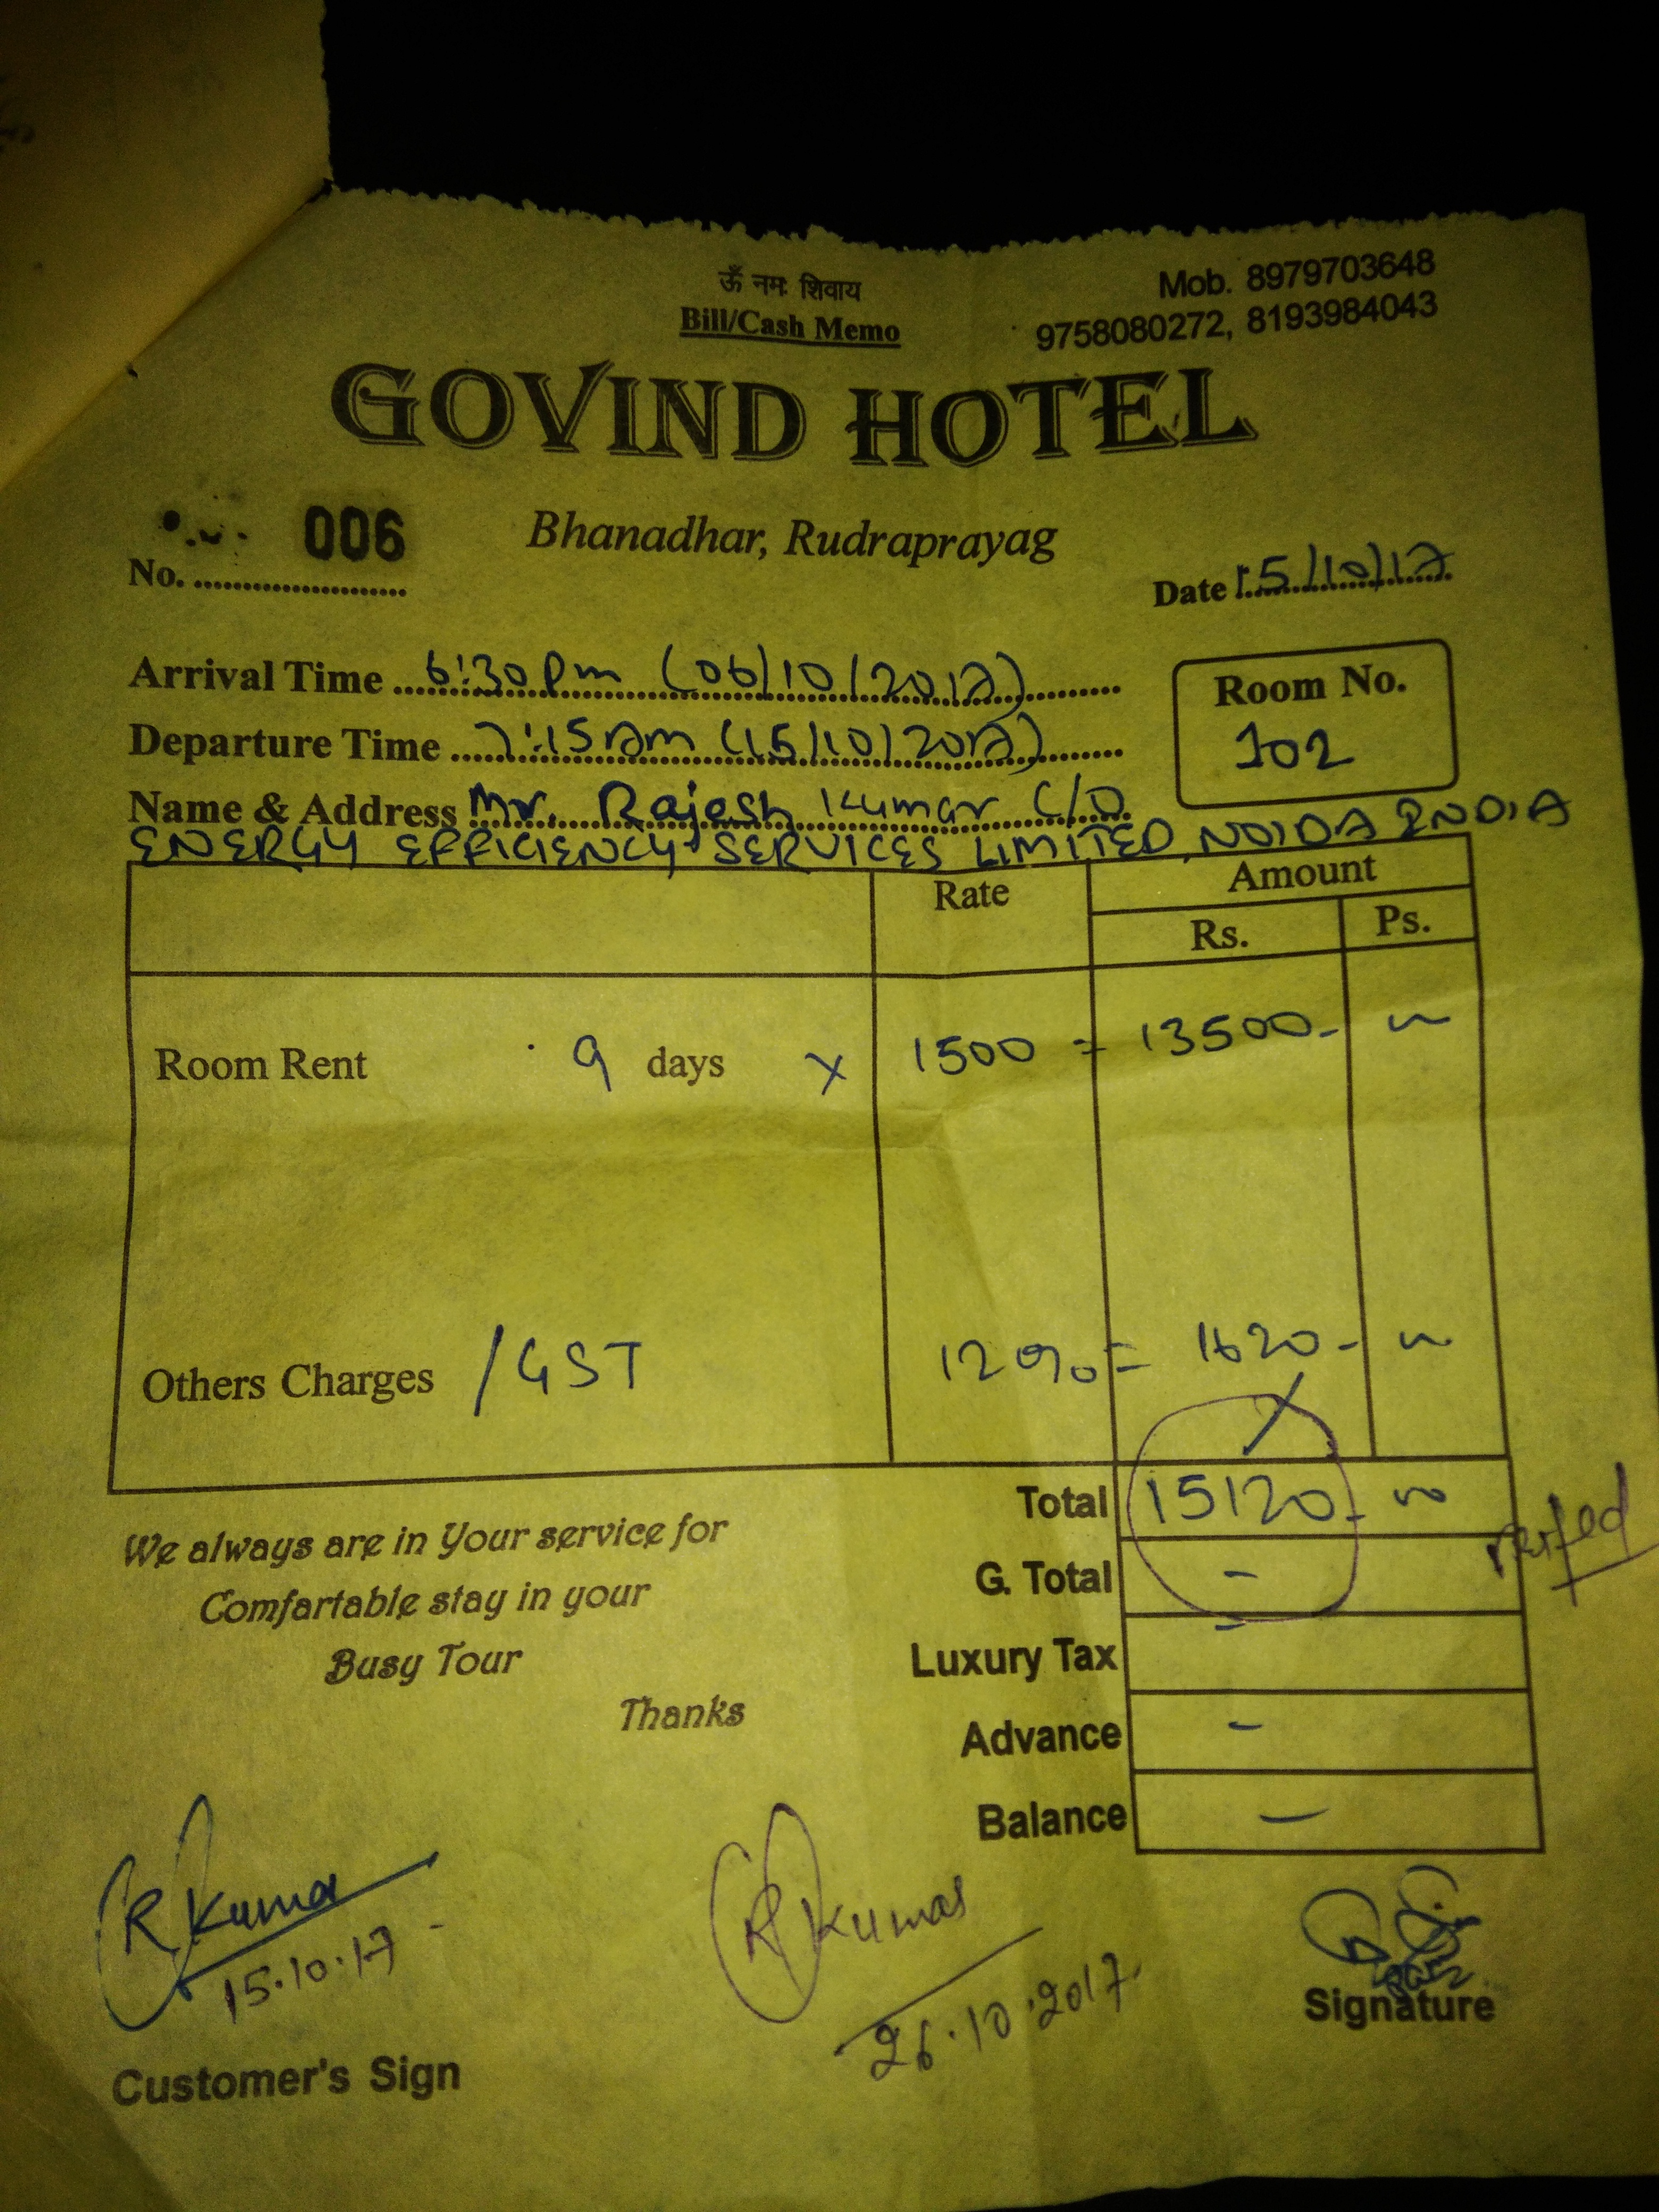 ऊँ नमः शिवाय
Bill/Cash Memo
Mob. 8979703648
9758080272, 8193984043
GOVIND HOTEL
Bhanadhar, Rudraprayag
No. 006
Date 15/10/17
Arrival Time 6:30 Pm (06/10/2017)
Departure Time 7:15 Am (15/10/2017)
Room No.
102
Name & Address Mr. Rajesh Kumar C/O
ENERGY EFFICIENCY SERVICES LIMITED, NOIDA INDIA
Rate Amount
Rs. Ps.
Room Rent 9 days x 1500 = 13500-
Others Charges /GST 12% = 1620-
Total 15120-
G. Total -
Luxury Tax -
Advance -
Balance -
We always are in Your service for
Comfartable stay in your
Busy Tour
Thanks
R Kumar
15.10.17
Customer's Sign
R Kumar
26.10.2017
Signature